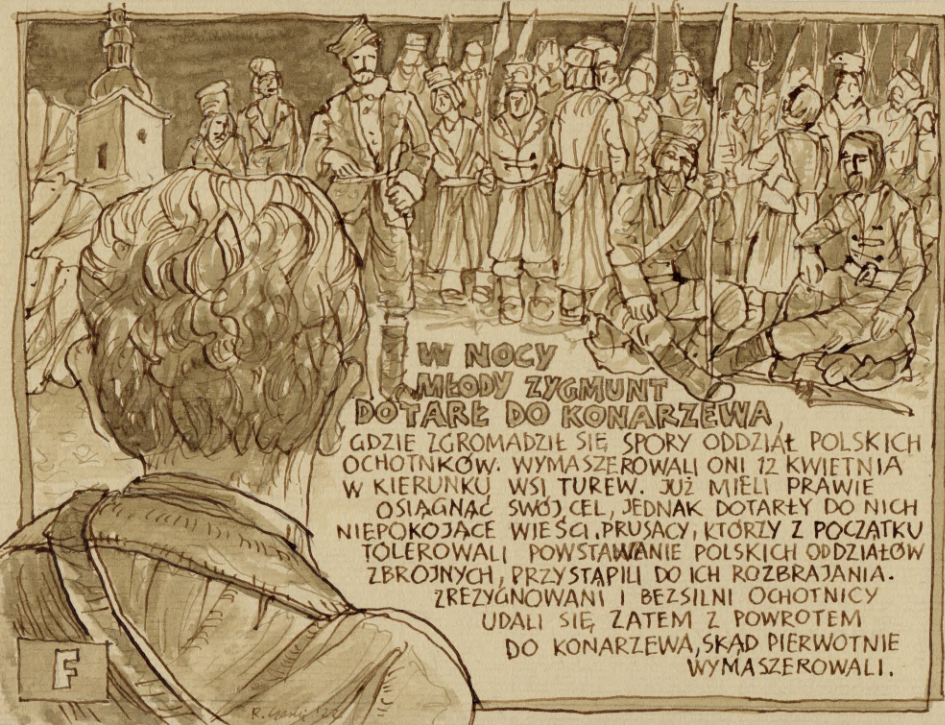 W NOCY
MŁODY ZYGMUNT
DOTARŁ DO KONARZEWA,
GDZIE ZGROMADZIŁ SIĘ SPORY ODDZIAŁ POLSKICH
OCHOTNKÓW. WYMASZEROWALI ONI 12 KWIETNIA
W KIERUNKU WSI TUREW. JUŻ MIELI PRAWIE
OSIĄGNĄĆ SWÓJ CEL, JEDNAK DOTARŁY DO NICH
NIEPOKOJĄCE WIEŚCI. PRUSACY, KTÓRZY Z POCZĄTKU
TOLEROWALI POWSTAWANIE POLSKICH ODDZIAŁÓW
ZBROJNYCH, PRZYSTĄPILI DO ICH ROZBRAJANIA.
ZREZYGNOWANI I BEZSILNI OCHOTNICY
UDALI SIĘ ZATEM Z POWROTEM
DO KONARZEWA, SKĄD PIERWOTNIE
WYMASZEROWALI.
F
R.